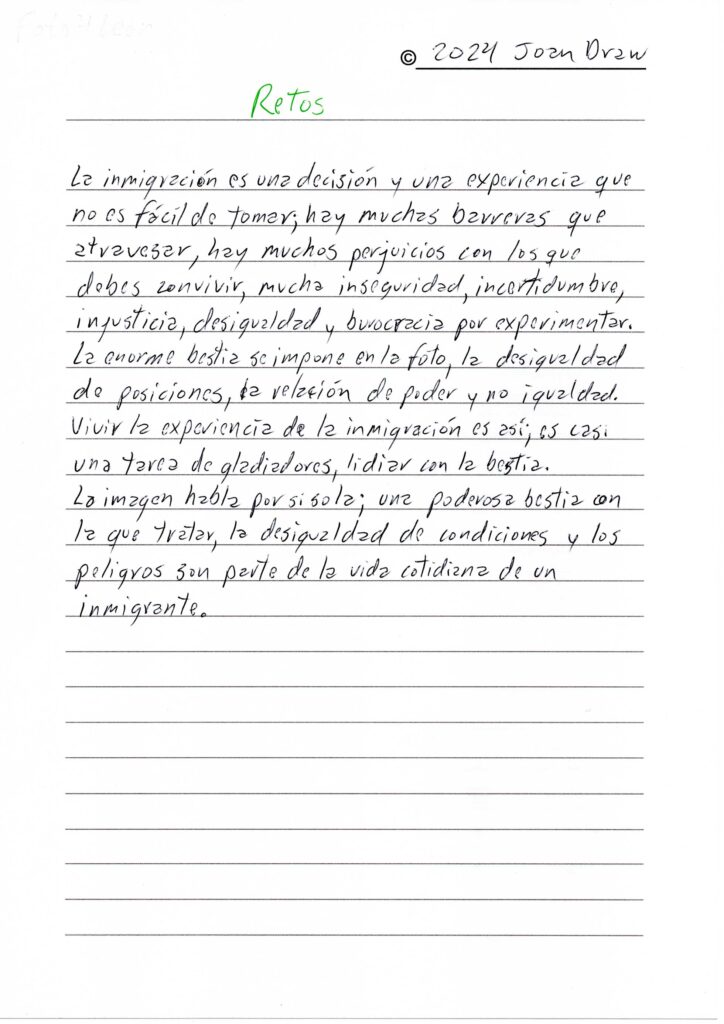 © 2024 Joan Draw
Retos
La inmigración es una decisión y una experiencia que
no es fácil de tomar; hay muchas barreras que
atravesar, hay muchos perjuicios con los que
debes convivir, mucha inseguridad, incertidumbre,
injusticia, desigualdad y burocracia por experimentar.
La enorme bestia se impone en la foto, la desigualdad
de posiciones, la relación de poder y no igualdad.
Vivir la experiencia de la inmigración es así; es casi
una tarea de gladiadores, lidiar con la bestia.
La imagen habla por si sola; una poderosa bestia con
la que tratar, la desigualdad de condiciones y los
peligros son parte de la vida cotidiana de un
inmigrante.